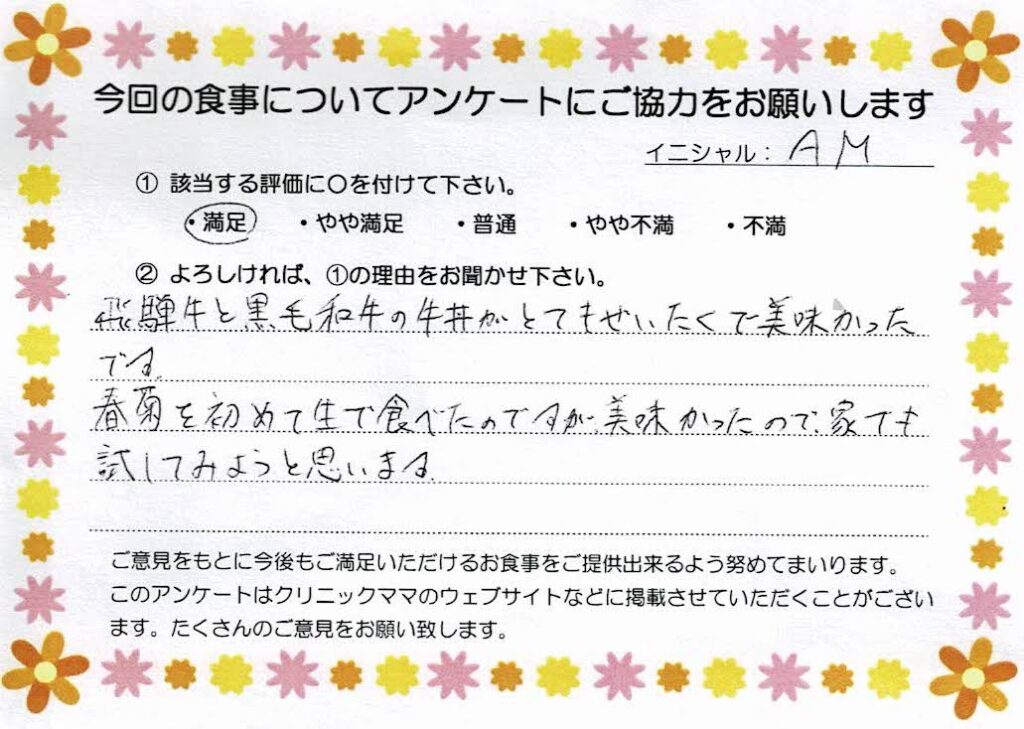 今回の食事についてアンケートにご協力をお願いします
イニシャル： AM
① 該当する評価に〇を付けて下さい。
・満足 ・やや満足 ・普通 ・やや不満 ・不満
② よろしければ、①の理由をお聞かせ下さい。
飛騨牛と黒毛和牛の牛丼がとてもぜいたくで美味かった
です。
春菊を初めて生で食べたのですが、美味かったので、家でも
試してみようと思います。
ご意見をもとに今後もご満足いただけるお食事をご提供出来るよう努めてまいります。
このアンケートはクリニックママのウェブサイトなどに掲載させていただくことがござい
ます。たくさんのご意見をお願い致します。